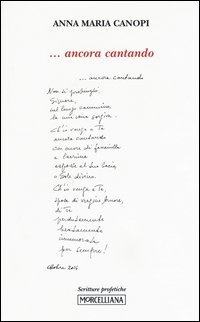 ANNA MARIA CANOPI
... ancora cantando
... ancora cantando
Non si prolunghi,
Signore,
nel lungo cammino
la mia corsa
Ch'io venga a Te
ancora cantando
con cuore di fanciulla
e lacrime
esposte al tuo bacio,
o Sole divino.
Ch'io venga a Te,
sposa di vergine Amore,
di Te
perdutamente
beatamente
innamorata
per sempre!
ottobre 2016
Scritture profetiche
MORCELLIANA